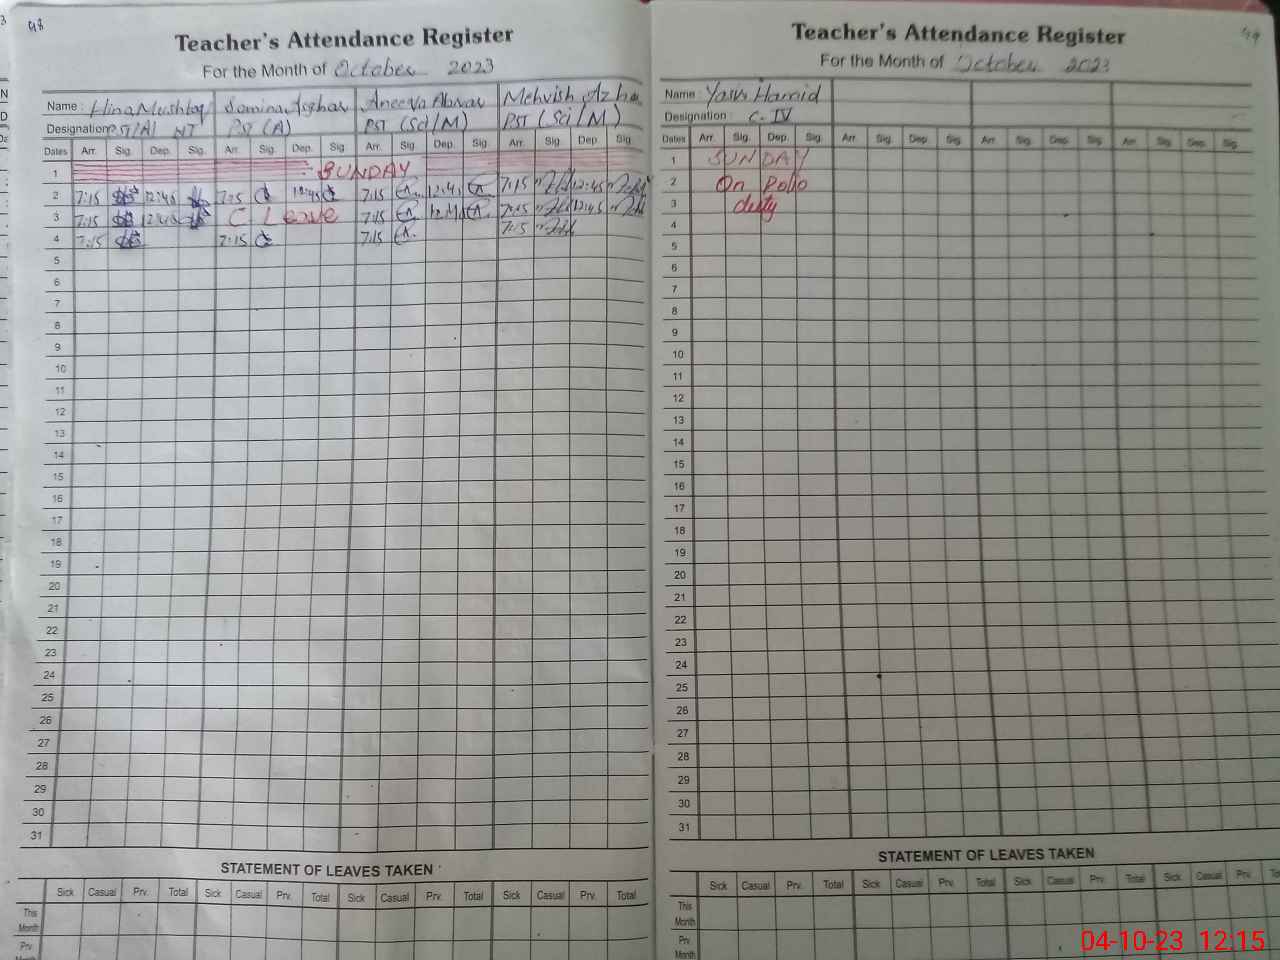 98
Teacher's Attendance Register
For the Month of October 2023
Name : Hina Mushtaq Samina Asghar Aneeva Abrar Mehvish Azha
Designation PST(A) NT PST (A) PST (Sci/M) PST (Sci/M)
Dates Arr. Sig. Dep. Sig. Arr. Sig. Dep. Sig. Arr. Sig. Dep. Sig. Arr. Sig. Dep. Sig.
1 SUNDAY
2 7:15 12:45 7:15 12:45 7:15 12:45 7:15 12:45
3 7:15 12:45 C Leave 7:15 12:45 7:15 12:45
4 7:15 7:15 7:15 7:15
5
6
7
8
9
10
11
12
13
14
15
16
17
18
19
20
21
22
23
24
25
26
27
28
29
30
31
STATEMENT OF LEAVES TAKEN
Sick Casual Prv. Total Sick Casual Prv. Total Sick Casual Prv. Total Sick Casual Prv. Total
This Month
Prv Month
Teacher's Attendance Register
For the Month of October 2023
Name : Hamid
Designation : C-IV
Dates Arr. Sig. Dep. Sig. Arr. Sig. Dep. Sig. Arr. Sig. Dep. Sig. Arr. Sig. Dep. Sig.
1 SUNDAY
2 On Polio
3 duty
4
5
6
7
8
9
10
11
12
13
14
15
16
17
18
19
20
21
22
23
24
25
26
27
28
29
30
31
STATEMENT OF LEAVES TAKEN
Sick Casual Prv. Total Sick Casual Prv. Total Sick Casual Prv. Total Sick Casual Prv.
This Month
Prv Month
04-10-23 12:15